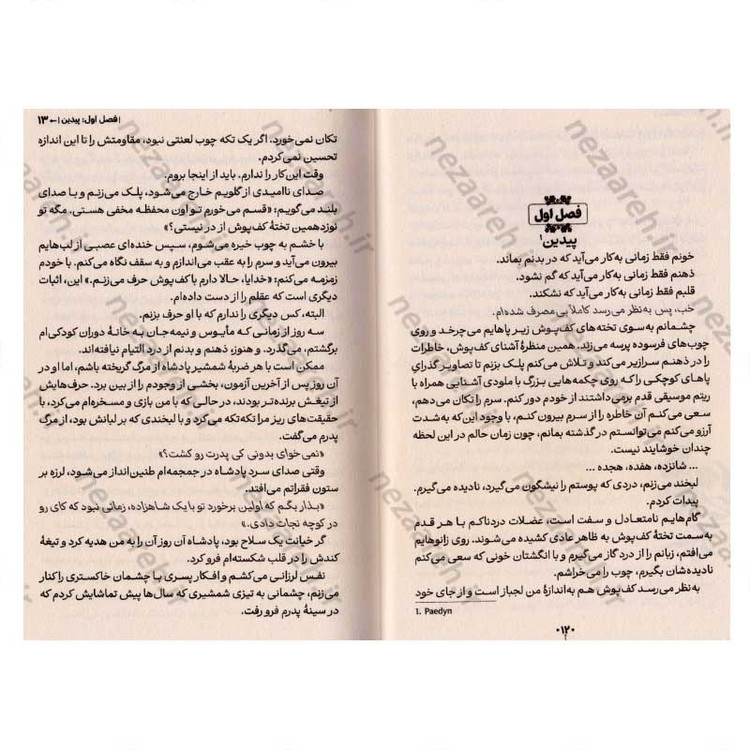 فصل اول
پیدین۱
خونم فقط زمانی به‌کار می‌آید که در بدنم بماند.
ذهنم فقط زمانی به‌کار می‌آید که گم نشود.
قلبم فقط زمانی به‌کار می‌آید که نشکند.
خب، پس به‌نظر می‌رسد کاملاً بی‌مصرف شده‌ام.
چشمانم به‌سوی تخته‌های کف‌پوش زیر پاهایم می‌چرخد و روی
چوب‌های فرسوده پرسه می‌زند. همین منظرهٔ آشنای کف‌پوش، خاطرات
را در ذهنم سرازیر می‌کند و تلاش می‌کنم پلک بزنم تا تصاویر گذرای
پاهای کوچکی را که روی چکمه‌هایی بزرگ با ملودی آشنایی همراه با
ریتم موسیقی قدم برمی داشتند از خودم دور کنم. سرم را تکان می‌دهم،
سعی می‌کنم آن خاطره را از سرم بیرون کنم، با وجود این که به‌شدت
آرزو می‌کنم می‌توانستم در گذشته بمانم، چون زمان حالم در این لحظه
چندان خوشایند نیست.
... شانزده، هفده، هجده ...
لبخند می‌زنم، دردی که پوستم را نیشگون می‌گیرد، نادیده می‌گیرم.
پیدات کردم.
گام‌هایم نامتعادل و سفت است، عضلات دردناکم با هر قدم
به‌سمت تختهٔ کف‌پوش به ظاهر عادی کشیده می‌شوند. روی زانوهایم
می‌افتم، زبانم را از درد گاز می‌گیرم و با انگشتان خونی که سعی می‌کنم
نادیده‌شان بگیرم، چوب را می‌خراشم.
به‌نظر می‌رسد کف‌پوش هم به‌اندازهٔ من لجباز است و از جای خود
1. Paedyn
۱۲
| فصل اول: پیدین | ← ۱۳
تکان نمی‌خورد. اگر یک تکه چوب لعنتی نبود، مقاومتش را تا این اندازه
تحسین نمی‌کردم.
وقت این‌کار را ندارم. باید از اینجا بروم.
صدای ناامیدی از گلویم خارج می‌شود، پلک می‌زنم و با صدای
بلند می‌گویم: «قسم می‌خورم تو اون محفظه مخفی هستی. مگه تو
نوزدهمین تختهٔ کف‌پوش از در نیستی؟»
با خشم به چوب خیره می‌شوم، سپس خنده‌ای عصبی از لب‌هایم
بیرون می‌آید و سرم را به عقب می‌اندازم و به سقف نگاه می‌کنم. با خودم
زمزمه می‌کنم: «خدایا، حالا دارم با کف‌پوش حرف می‌زنم.» این، اثبات
دیگری است که عقلم را از دست داده‌ام.
البته، کس دیگری را ندارم که با او حرف بزنم.
سه روز از زمانی که مأیوس و نیمه‌جان به خانهٔ دوران کودکی‌ام
برگشتم، می‌گذرد. و هنوز، ذهنم و بدنم از درد التیام نیافته‌اند.
ممکن است با هر ضربهٔ شمشیر پادشاه از مرگ گریخته باشم، اما او در
آن روز پس از آخرین آزمون، بخشی از وجودم را از بین برد. حرف‌هایش
از تیغش برنده‌تر بودند، در حالی که با من بازی و مسخره‌ام می‌کرد، با
حقیقت‌های ریز مرا تکه‌تکه می‌کرد و با لبخندی که بر لبانش بود، از مرگ
پدرم می‌گفت.
«نمی خوای بدونی کی پدرت رو کشت؟»
وقتی صدای سرد پادشاه در جمجمه‌ام طنین‌انداز می‌شود، لرزه بر
ستون فقراتم می‌افتد.
«بذار بگم که اولین برخورد تو با یک شاهزاده، زمانی نبود که کای رو
در کوچه نجات دادی.»
گر خیانت یک سلاح بود، پادشاه آن روز آن را به من هدیه کرد و تیغهٔ
کندش را در قلب شکسته‌ام فرو کرد.
نفس لرزانی می‌کشم و افکار پسری با چشمان خاکستری را کنار
می‌زنم، چشمانی به تیزی شمشیری که سال‌ها پیش تماشایش کردم که
در سینهٔ پدرم فرو رفت.
nezaareh.ir